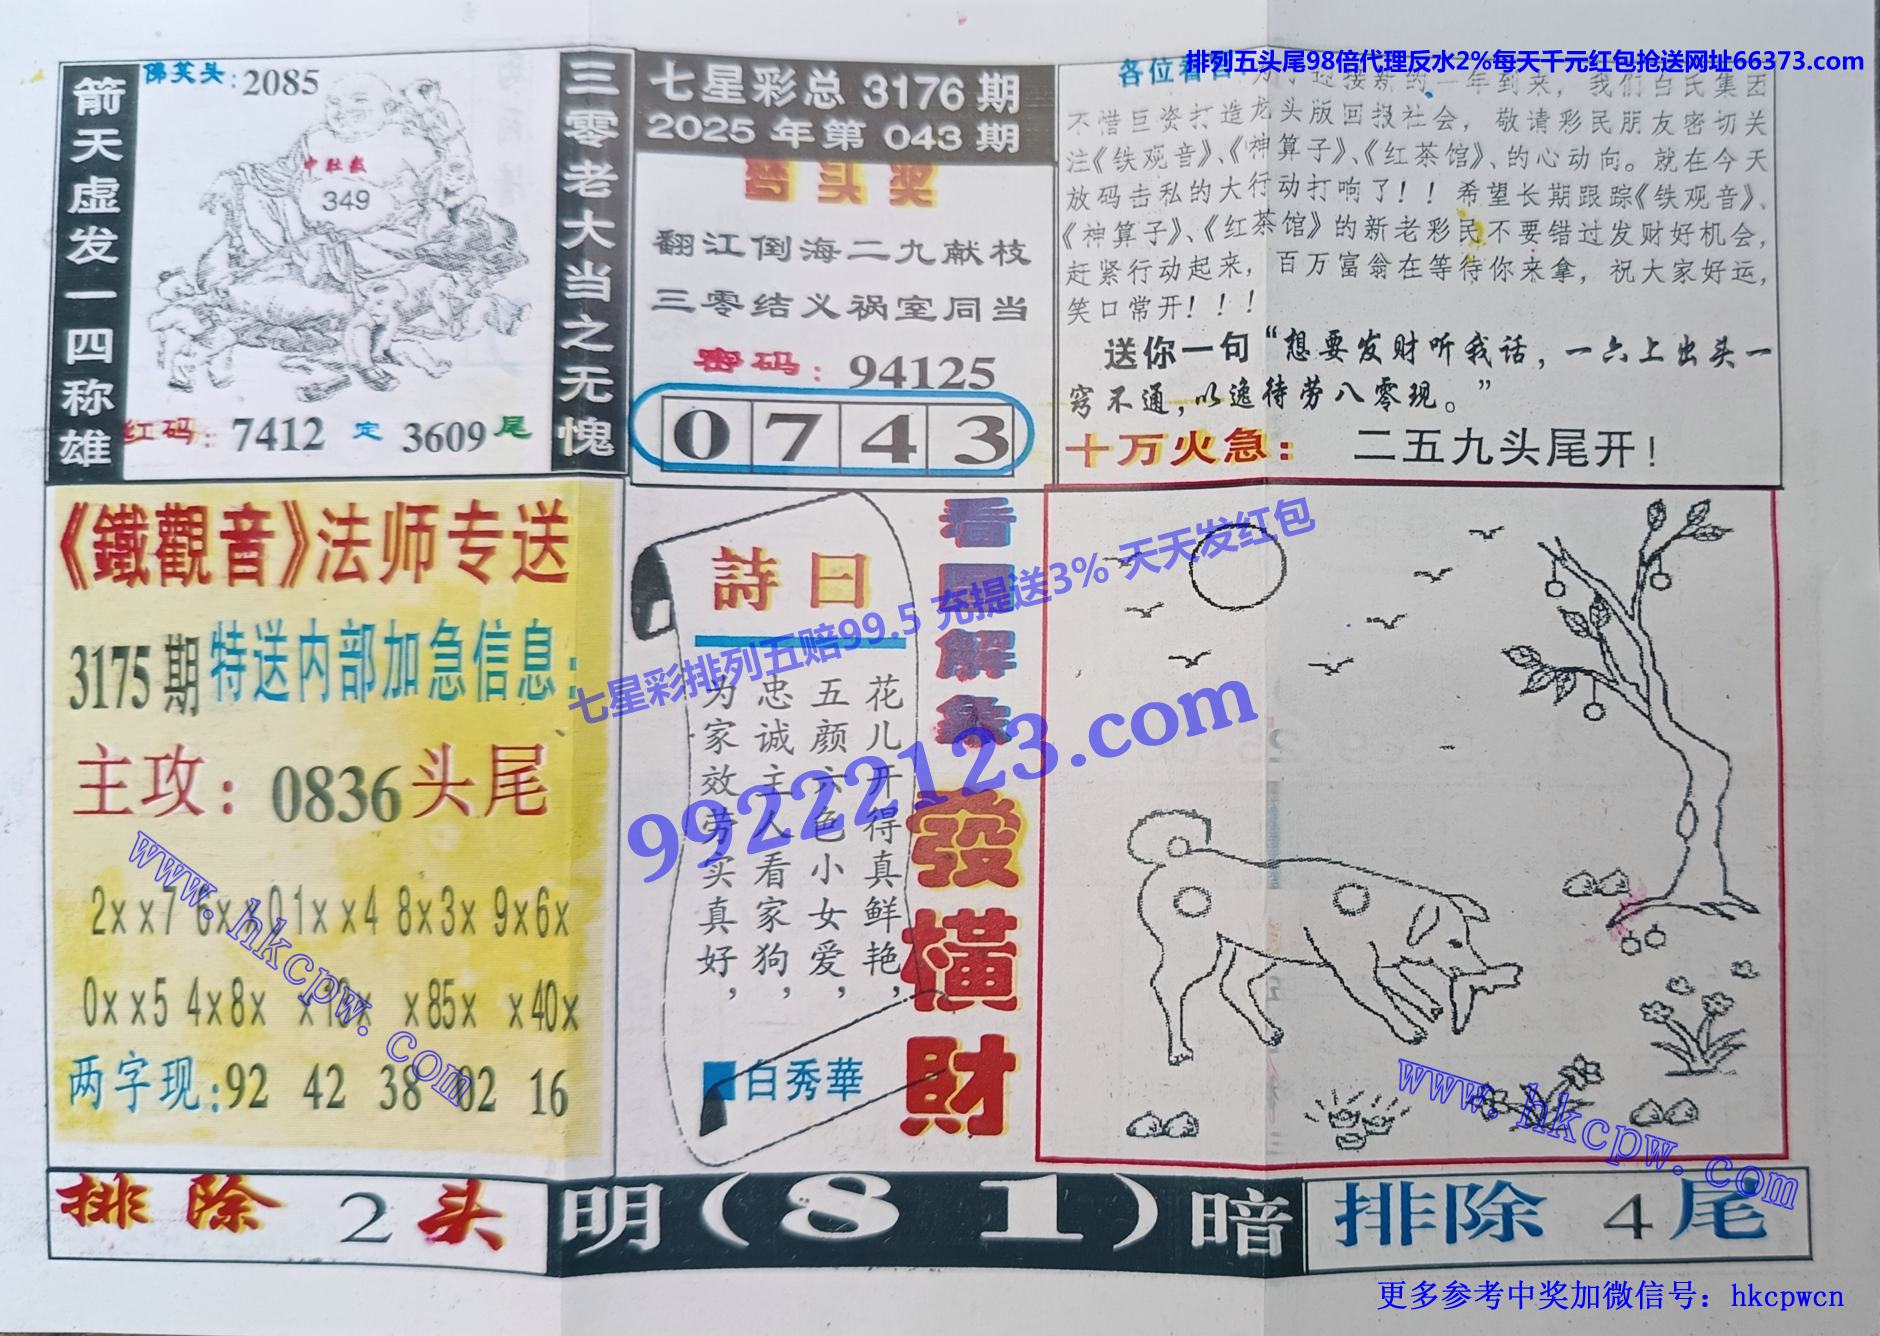 排列五头尾98倍代理反水2%每天千元红包抢送网址66373.com
箭天虚发一四称雄
佛笑头:2085
中肚数
349
红码:7412 定 3609 尾
三零老大当之无愧
七星彩总 3176 期
2025 年第 043 期
头奖
翻江倒海二九献枝
三零结义祸室同当
密码:94125
0 7 4 3
各位看官:
接新的一年到来，我们白氏集团
不惜巨资打造龙头版回报社会，敬请彩民朋友密切关
注《铁观音》、《神算子》、《红茶馆》、的心动向。就在今天
放码击私的大行动打响了！！希望长期跟踪《铁观音》、
《神算子》、《红茶馆》的新老彩民不要错过发财好机会，
赶紧行动起来，百万富翁在等待你来拿，祝大家好运，
笑口常开！！！
送你一句“想要发财听我话，一六上出头一
窍不通，以逸待劳八零现。”
十万火急：二五九头尾开！
《鐵觀音》法师专送
3175期特送内部加急信息：
主攻：0836头尾
2××7 6××0 1××4 8×3× 9×6×
0××5 4×8× ×85× ×40×
两字现:92 42 38 02 16
詩曰
花儿开得真鲜艳，
五颜六色小女爱，
忠诚主人看家狗，
为家效劳实真好，
白秀華
看图解象
發橫財
七星彩排列五赔99.5 充提送3% 天天发红包
99222123.com
www.hkcpw.com
www.hkcpw.com
排除 2 头
明(81)暗
排除 4 尾
更多参考中奖加微信号：hkcpwcn